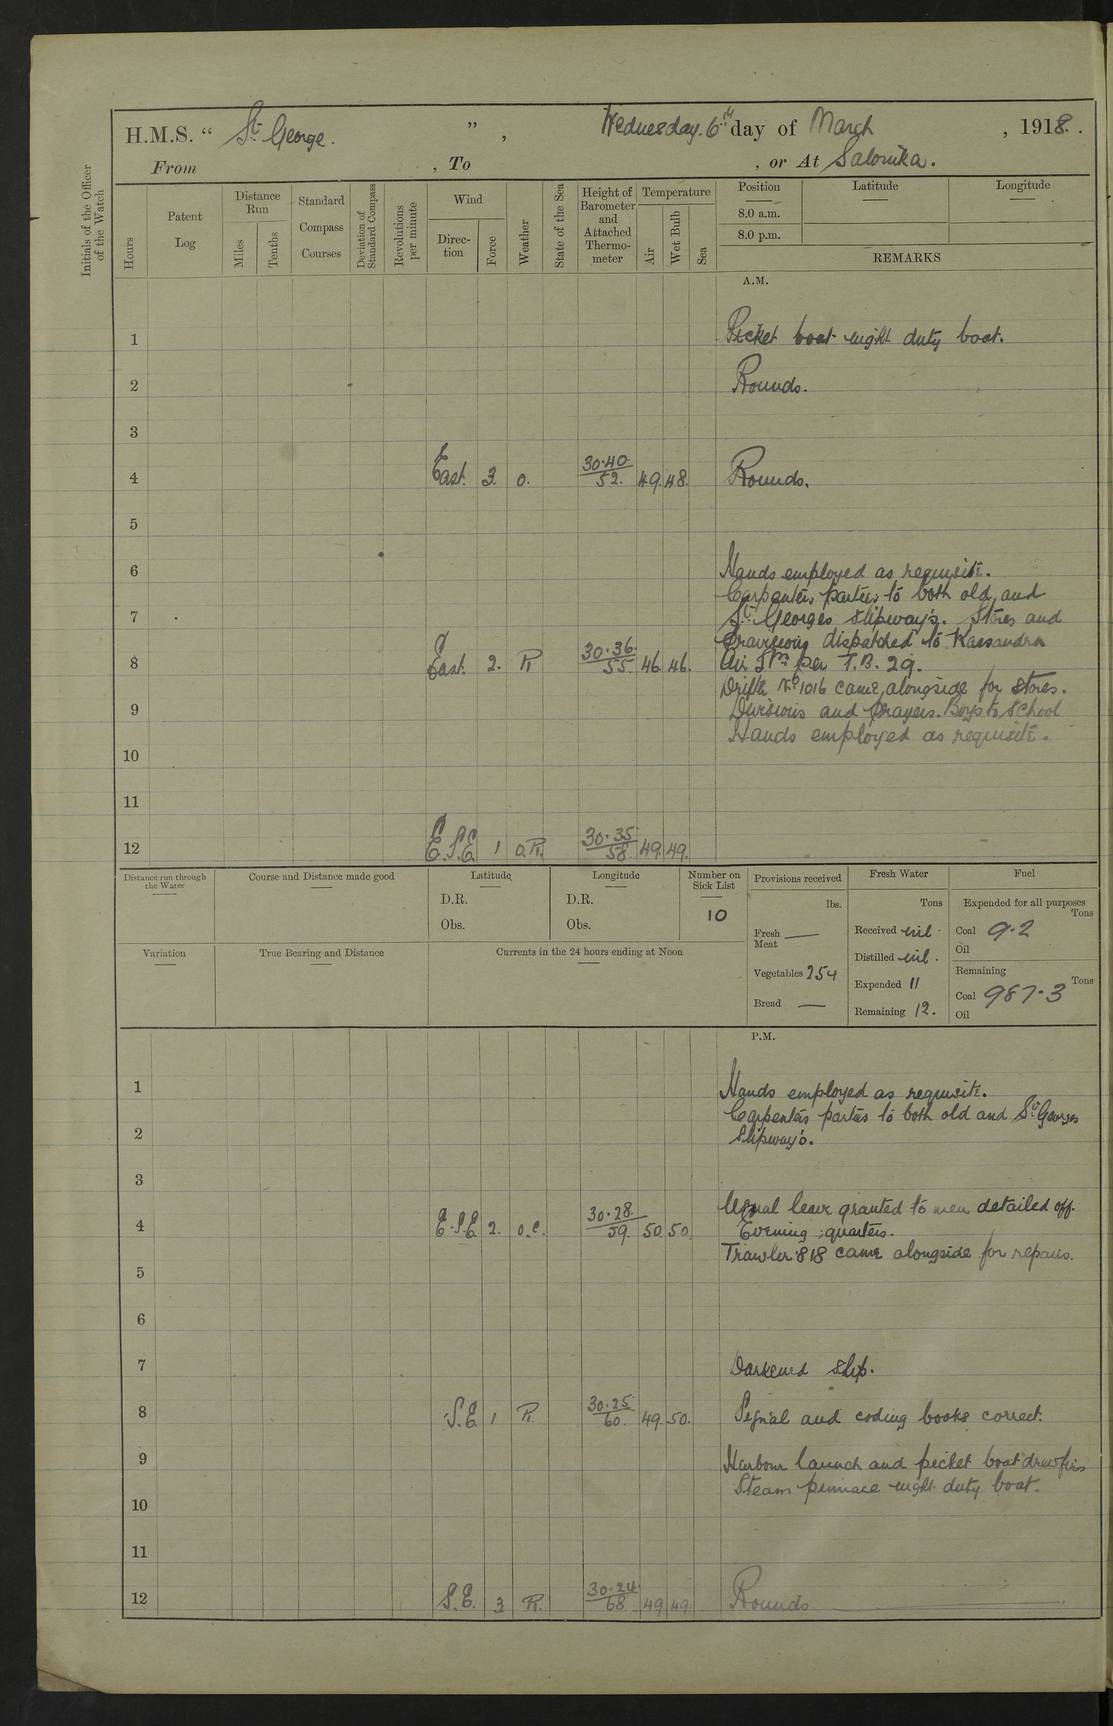 H.M.S. “ St. George. ” , Wednesday. 6th day of March , 1918.
From , To , or At Salonika.
Initials of the Officer of the Watch
Hours
Patent Log
Distance Run
Miles
Tenths
Standard Compass Courses
Deviation of Standard Compass
Revolutions per minute
Wind
Direc-tion
Force
Weather
State of the Sea
Height of Barometer and Attached Thermo-meter
Temperature
Air
Wet Bulb
Sea
Position Latitude Longitude
8.0 a.m.
8.0 p.m.
REMARKS
A.M.
1 Picket boat night duty boat.
2 Rounds.
3
4 East. 3. o. 30.40. 52. 49. 48. Rounds.
5
6 Hands employed as requisite.
Carpenters parties to both old and
7 St. Georges slipway's. Stores and
dispatched to Kassandra
8 East. 2. R 30.36. 55. 46. 46. Air Stn per T.B. 29.
Drifter No 1016 came alongside for stores.
9 Divisions and prayers. Boys to School
Hands employed as requisite.
10
11
12 E.S.E. 1 o.R. 30.35 58. 49. 49.
Distance run through the Water
Course and Distance made good
Latitude
D.R.
Obs.
Longitude
D.R.
Obs.
Number on Sick List
10
Provisions received
lbs.
Fresh Meat —
Vegetables 254
Bread —
Fresh Water
Tons
Received nil.
Distilled nil.
Expended 11
Remaining 12.
Fuel
Expended for all purposes
Tons
Coal 9.2
Oil
Remaining
Tons
Coal 987.3
Oil
Variation
True Bearing and Distance
Currents in the 24 hours ending at Noon
P.M.
1 Hands employed as requisite.
Carpenters parties to both old and St. Georges
2 Slipway's.
3
4 E.S.E 2. o.c. 30.28. 59. 50. 50. Usual leave granted to men detailed off.
Evening quarters.
Trawler 818 came alongside for repairs.
5
6
7 Darkened ship.
8 S.E. 1 R. 30.25 60. 49. 50. Signal and coding books correct.
9 Harbour launch and picket boat drew fires
Steam pinnace night duty boat.
10
11
12 S.E. 3 R. 30.24 68 49 49 Rounds